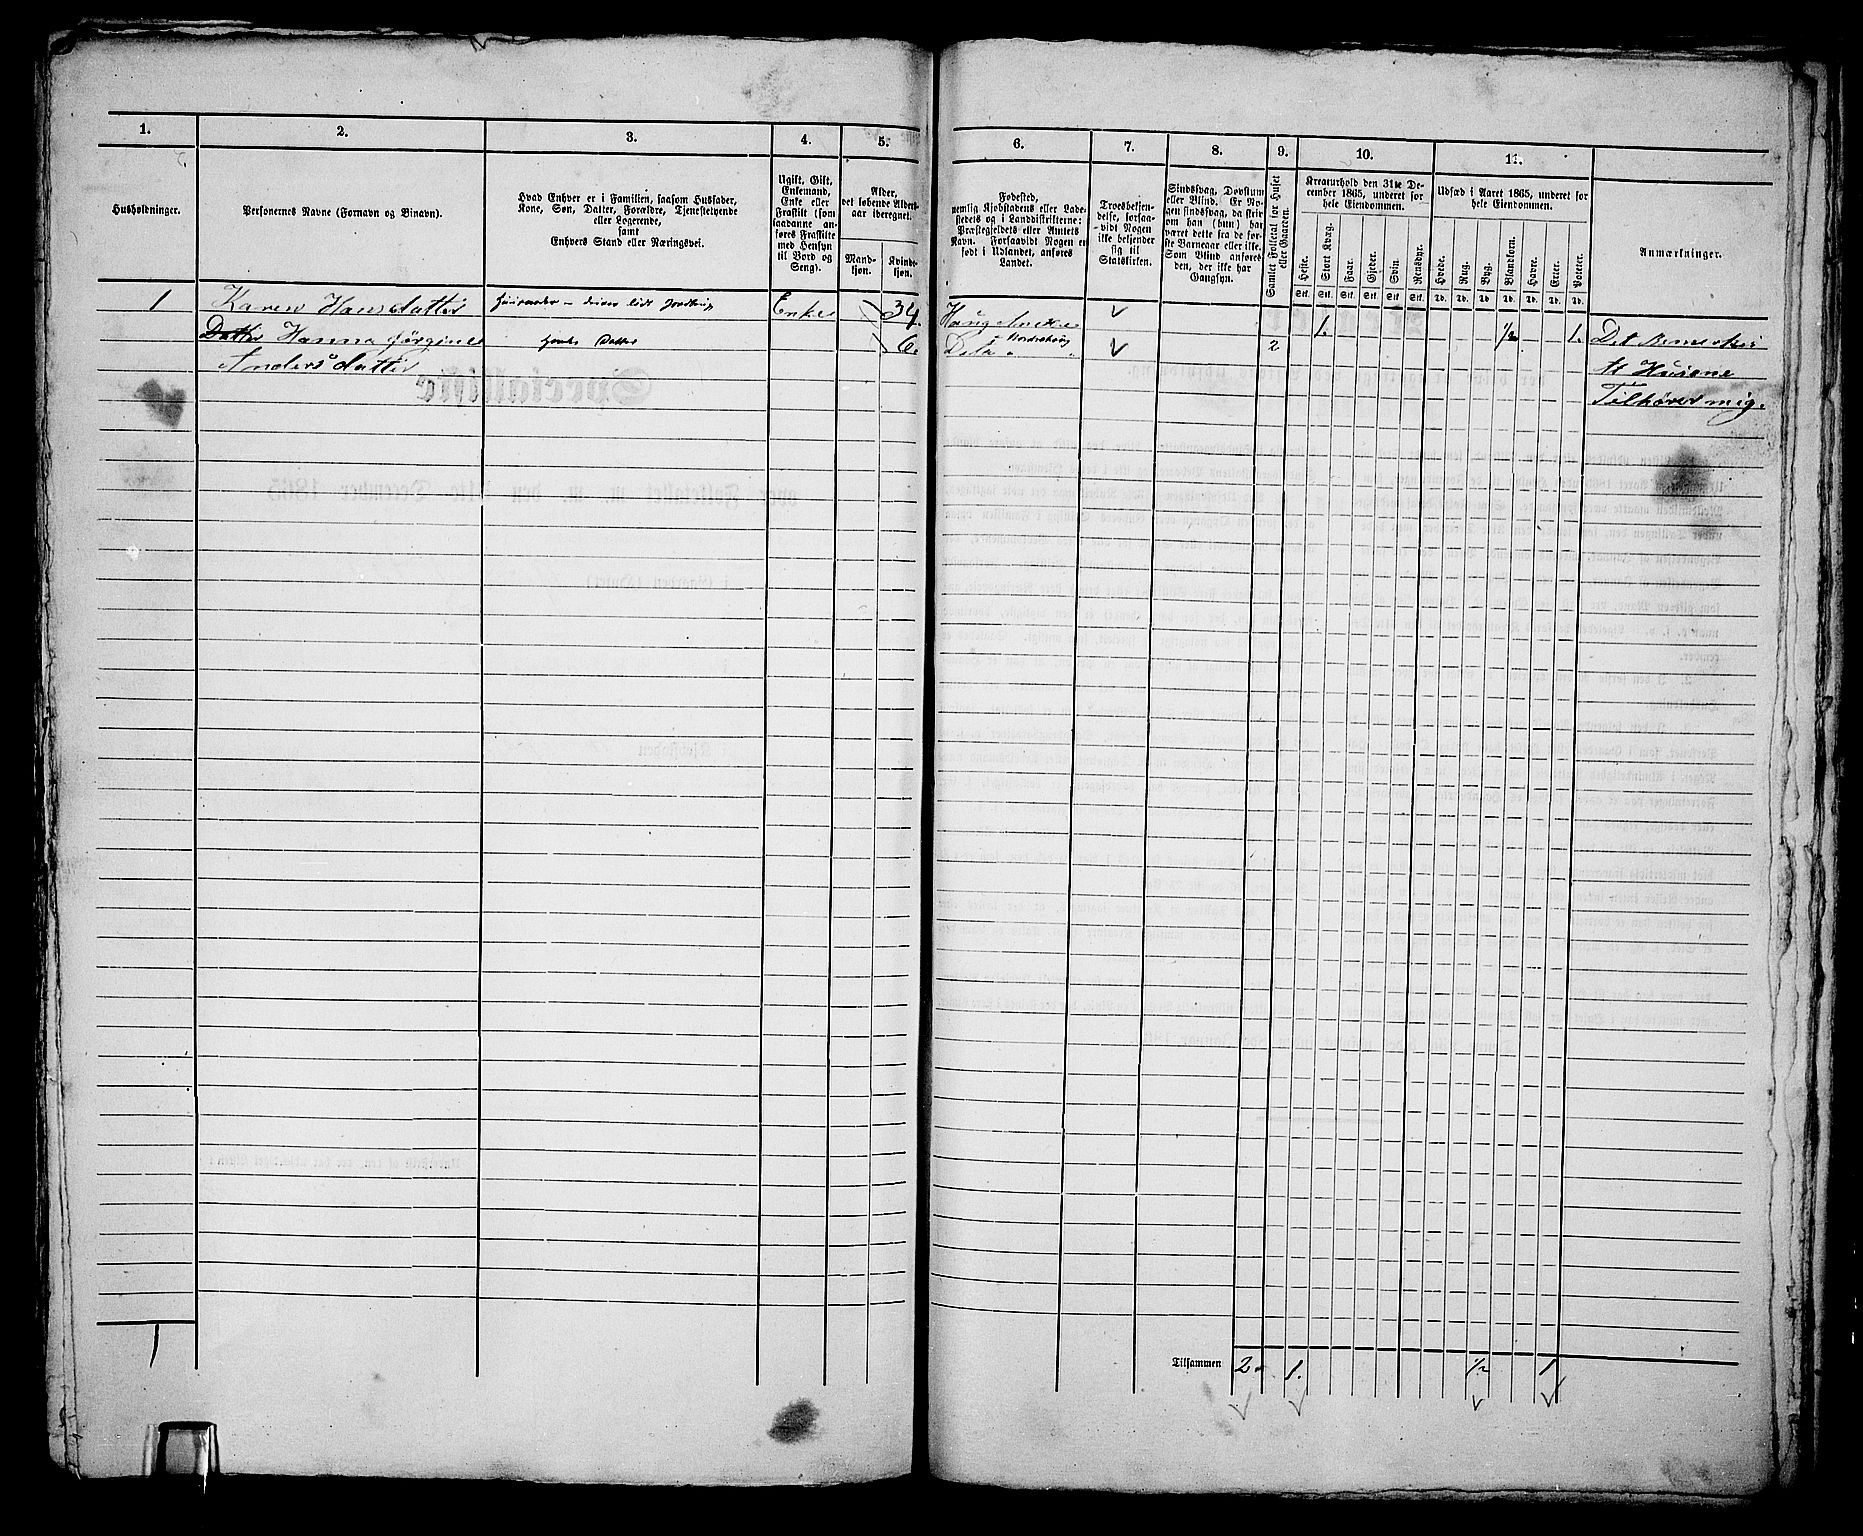 1.
2.
3.
4.
5.
6.
7.
8.
9.
10.
11.
Husholdninger.
Personernes Navne (Fornavn og Binavn).
Hvad Enhver er i Familien, saasom Husfader,
Kone, Søn, Datter, Forældre, Tjenstetyende
eller Logerende,
samt
Enhvers Stand eller Næringsvei.
Ugift, Gift,
Enkemand,
Enke eller
Fraskilt (som
saadanne an-
føres Fraskilte
med Hensyn
til Bord og
Seng).
Alder,
det løbende Alders-
aar iberegnet.
Mand-
kjøn.
Kvinde-
kjøn.
Fødested,
nemlig Kjøbstadens eller Lade-
stedets og i Landdistrikterne:
Præstegjeldets eller Annexets
Navn. Forsaavidt Nogen er
født i Udlandet, anføres
Landet.
Troesbekjen-
delse, forsaa-
vidt Nogen
ikke bekjender
sig til
Statskirken.
Sindssvag, Døvstum
eller Blind. Er No-
gen sindssvag, da skriv
om han (hun) har
været dette fra de før-
ste Barneaar eller ikke.
Som Blind anføres
den, der ikke har
Gangsyn.
Samlet Folketal for Huset
eller Gaarden.
Kreaturhold den 31te De-
cember 1865, underet for
hele Eiendommen.
Heste. Stort Kvæg. Faar. Gjeder. Svin. Rensdyr.
Stk. Stk. Stk. Stk. Stk. Stk.
Udsæd i Aaret 1865, underet for
hele Eiendommen.
Hvede. Rug. Byg. Blandkorn. Havre. Erter. Poteter.
Td. Td. Td. Td. Td. Td. Td.
Anmærkninger.
1 Karen Hansdatter Enke 34. Haug Anex
Datter Hanna Jørgine hendes Datter 6. Do 2 1. 1/2 1. Det Bemerkes
Andersdatter At Husene
Tilhører mig.
1 Tilsammen 2 1. 1/2 1